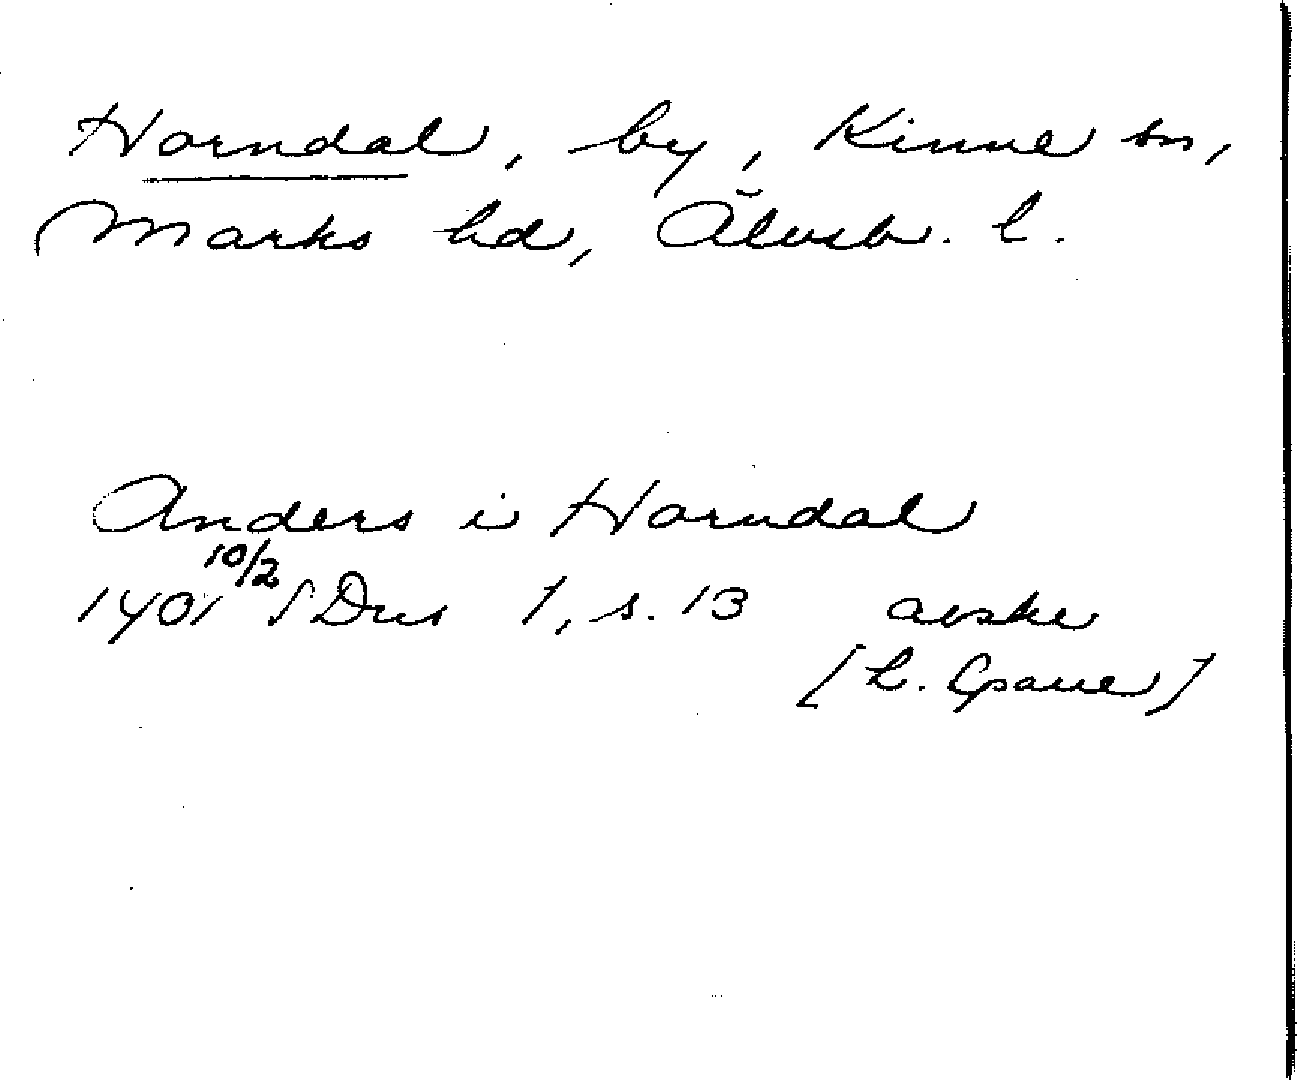 Horndal, by, Kinne sn,
Marks hd, Älvsb. l.
Anders i Horndal
1401 10/2 SDns 1, s. 13 avskr
[L.